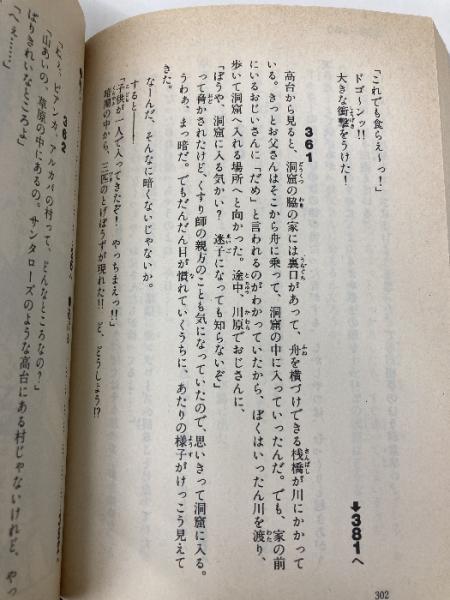 「これでも食らえ〜っ！」
ドゴ〜ンッ!!
大きな衝撃をうけた！
→381へ
361
高台から見ると、洞窟の脇の家には裏口があって、舟を横づけできる桟橋が川にかかって
いる。きっとお父さんはそこから舟に乗って、洞窟の中に入っていったんだ。でも、家の前
にいるおじいさんに「だめ」と言われるのがわかっていたから、ぼくはいったん川を渡り、
歩いて洞窟へ入れる場所へと向かった。途中、川原でおじさんに、
「ぼうや、洞窟に入る気かい？　迷子になっても知らないぞ」
って脅かされたけど、くすり師の親方のことも気になっていたので、思いきって洞窟に入る。
うわぁ、まっ暗だ。でもだんだん目が慣れていくうちに、あたりの様子がけっこう見えて
きた。
なーんだ、そんなに暗くないじゃないか。
すると――
「子供が一人で入ってきたぞ！　やっちまえっ!!」
暗闇の中から、三匹のとげぼうずが現れた!!　ど、どうしよう!?
302
362
「ねえ、ビアンカ、アルカパの村って、どんなところなの？」
「山あいの、草原の中にあるの。サンタローズのような高台にある村じゃないけれど、やっ
ぱりきれいなところよ」
「へえ……」